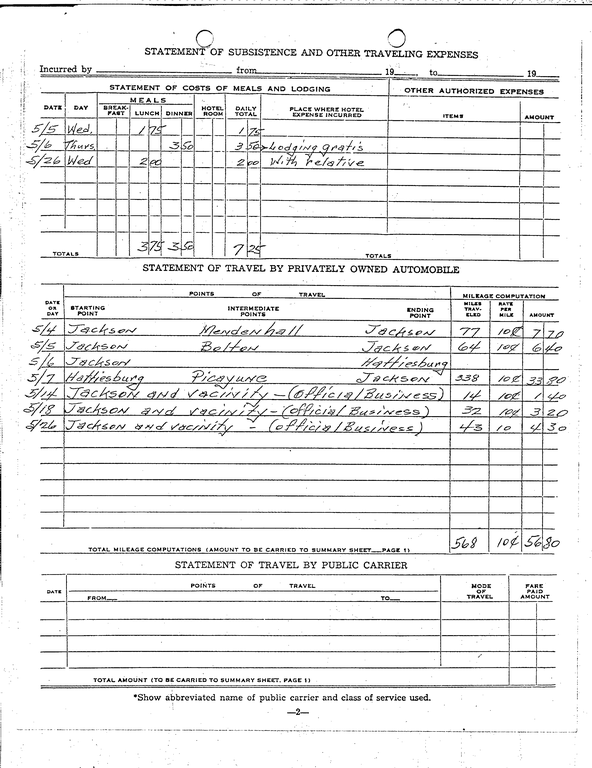 STATEMENT OF SUBSISTENCE AND OTHER TRAVELING EXPENSES
Incurred by from 19 to 19
STATEMENT OF COSTS OF MEALS AND LODGING OTHER AUTHORIZED EXPENSES
DATE DAY MEALS BREAK-FAST LUNCH DINNER HOTEL ROOM DAILY TOTAL PLACE WHERE HOTEL EXPENSE INCURRED ITEMS AMOUNT
5/5 Wed. 1 75 1 75
5/6 Thurs 3 50 3 50 Lodging gratis
5/26 Wed 2 00 2 00 With relative
TOTALS 3 75 3 50 7 25 TOTALS
STATEMENT OF TRAVEL BY PRIVATELY OWNED AUTOMOBILE
DATE OR DAY POINTS OF TRAVEL STARTING POINT INTERMEDIATE POINTS ENDING POINT MILEAGE COMPUTATION MILES TRAV-ELED RATE PER MILE AMOUNT
5/4 Jackson Mendenhall Jackson 77 10¢ 7 70
5/5 Jackson Bolton Jackson 64 10¢ 6 40
5/6 Jackson Hattiesburg
5/7 Hattiesburg Picayune Jackson 338 10¢ 33 80
5/14 Jackson and vacinity - (official Business) 14 10¢ 1 40
5/18 Jackson and vacinity - (official Business) 32 10¢ 3 20
5/26 Jackson and vacinity - (official Business) 43 10 4 30
TOTAL MILEAGE COMPUTATIONS (AMOUNT TO BE CARRIED TO SUMMARY SHEET—PAGE 1) 568 10¢ 56 80
STATEMENT OF TRAVEL BY PUBLIC CARRIER
DATE POINTS OF TRAVEL FROM— TO— MODE OF TRAVEL FARE PAID AMOUNT
TOTAL AMOUNT (TO BE CARRIED TO SUMMARY SHEET. PAGE 1)
*Show abbreviated name of public carrier and class of service used.
—2—